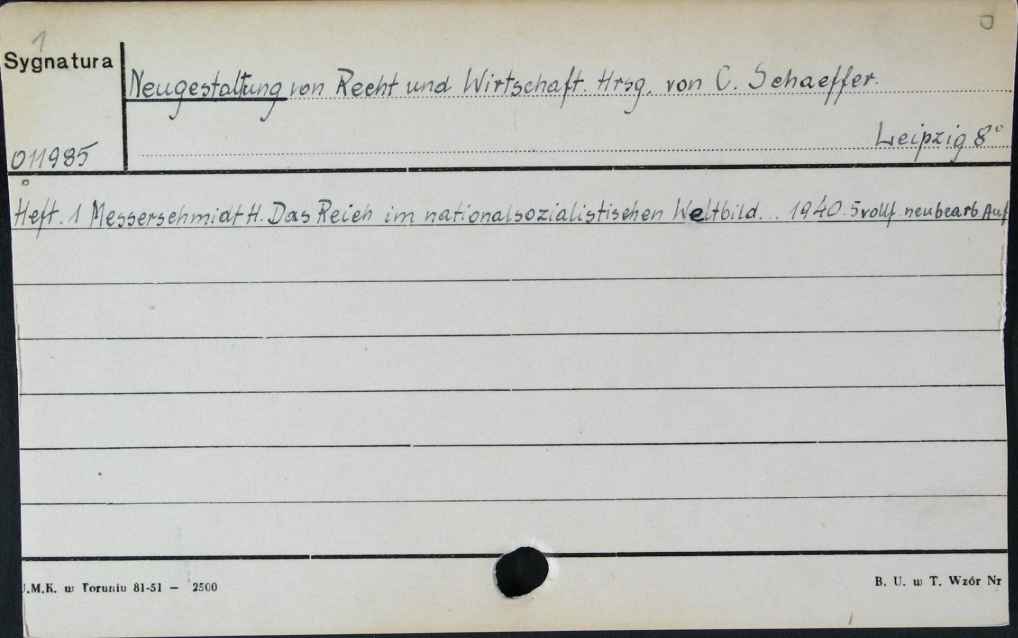 1
Sygnatura
Neugestaltung von Recht und Wirtschaft. Hrsg. von C. Schaeffer.
Leipzig 8°
011985
Heft. 1 Messerschmidt H. Das Reich im nationalsozialistischen Weltbild... 1940. 5 vollf. neubearb Auf
.M.K. w Toruniu 81-51 — 2500
B. U. w T. Wzór Nr